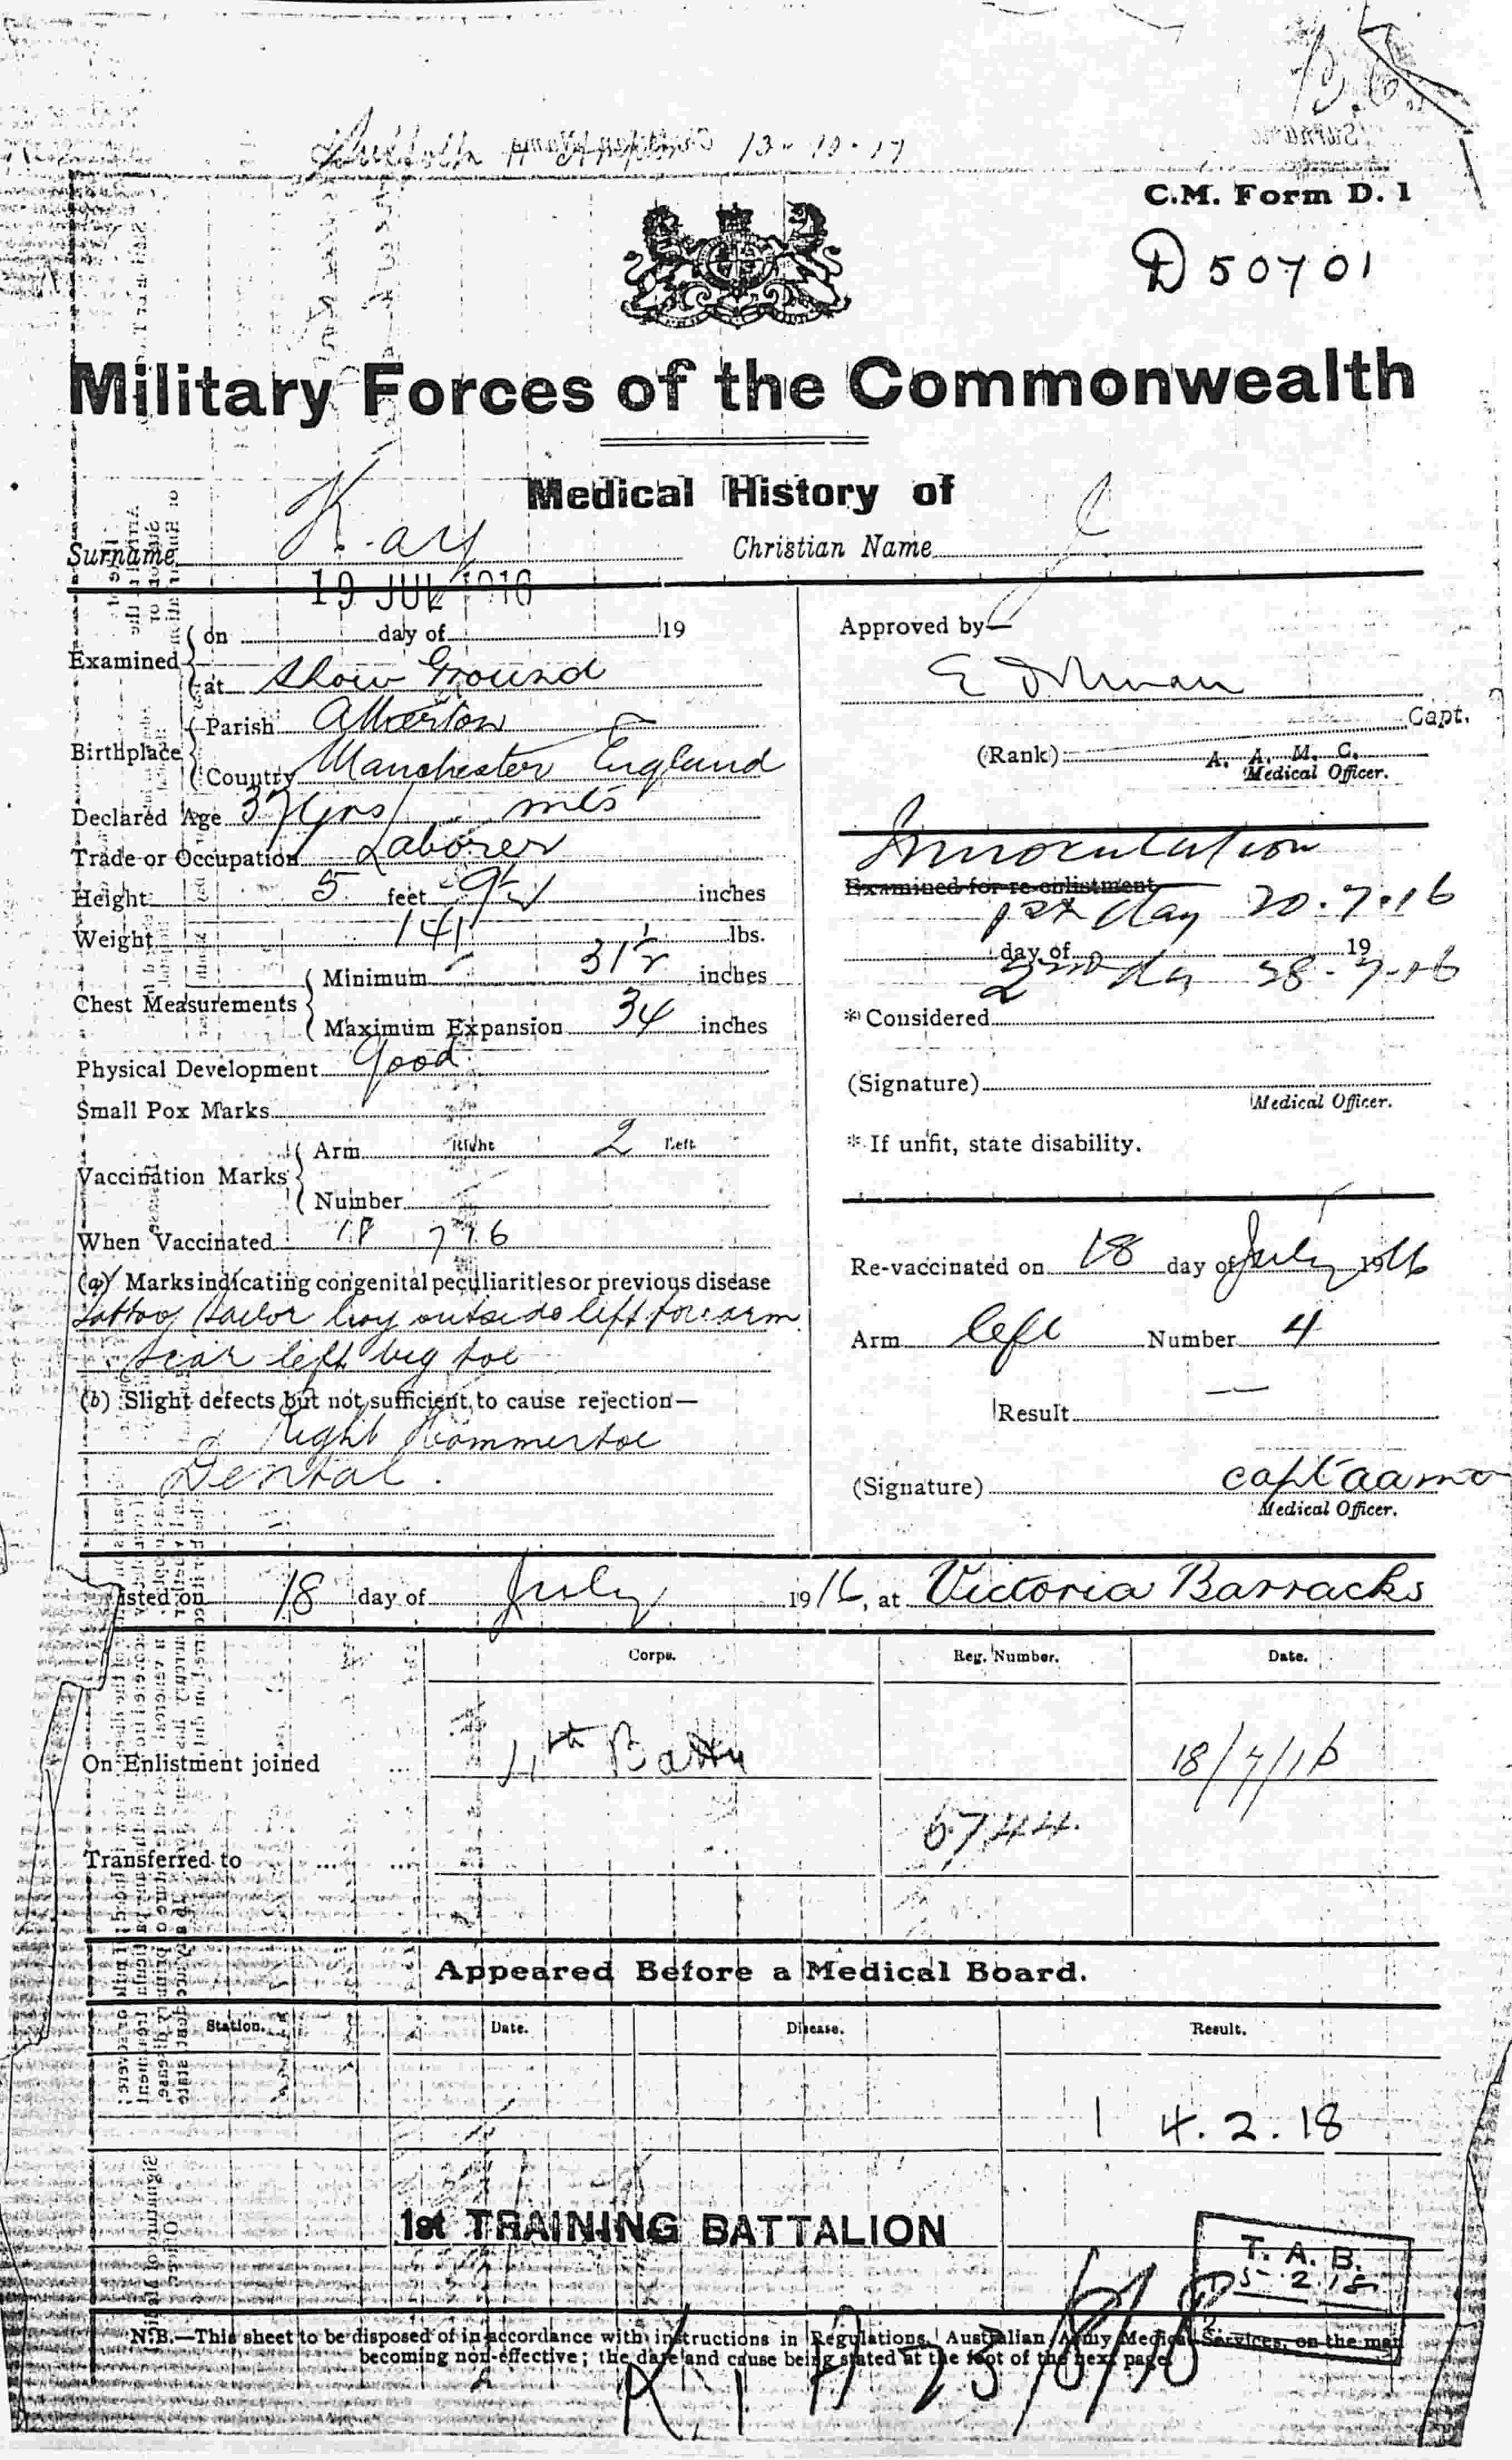 13-10-17
C.M. Form D. 1
D 50701
Military Forces of the Commonwealth
Medical History of
Surname Kay Christian Name J.
19 JUL 1916
Examined on day of 19
at Show Ground
Birthplace Parish Atherton
Country Manchester England
Declared Age 37 yrs mts
Trade or Occupation Laborer
Height 5 feet 9½ inches
Weight 141 lbs.
Chest Measurements Minimum 31½ inches
Maximum Expansion 34 inches
Physical Development good
Small Pox Marks
Vaccination Marks Arm Right 2 Left
Number
When Vaccinated 18 7 16
(a) Marks indicating congenital peculiarities or previous disease
Tattoo Sailor boy outside left forearm
Scar left big toe
(b) Slight defects but not sufficient to cause rejection—
Right Hammertoe
Dental.
Approved by—
Capt.
(Rank) A. A. M. C.
Medical Officer.
Innoculation
Examined for re-enlistment
1st day 20.7.16
day of 19
2nd 28-7-16
* Considered
(Signature)
Medical Officer.
* If unfit, state disability.
Re-vaccinated on 18 day of July 1916
Arm left Number 4
Result —
(Signature) capt aamc
Medical Officer.
isted on 18 day of July 1916, at Victoria Barracks
Corps. Reg. Number. Date.
On Enlistment joined ... 4th Battn 18/7/16
6744.
Transferred to ... ...
Appeared Before a Medical Board.
Station. Date. Disease. Result.
1 4.2.18
1st TRAINING BATTALION
T. A. B.
5 2 18
N.B.—This sheet to be disposed of in accordance with instructions in Regulations, Australian Army Medical Services, on the man
becoming non-effective; the date and cause being stated at the foot of the next page.
23/8/18